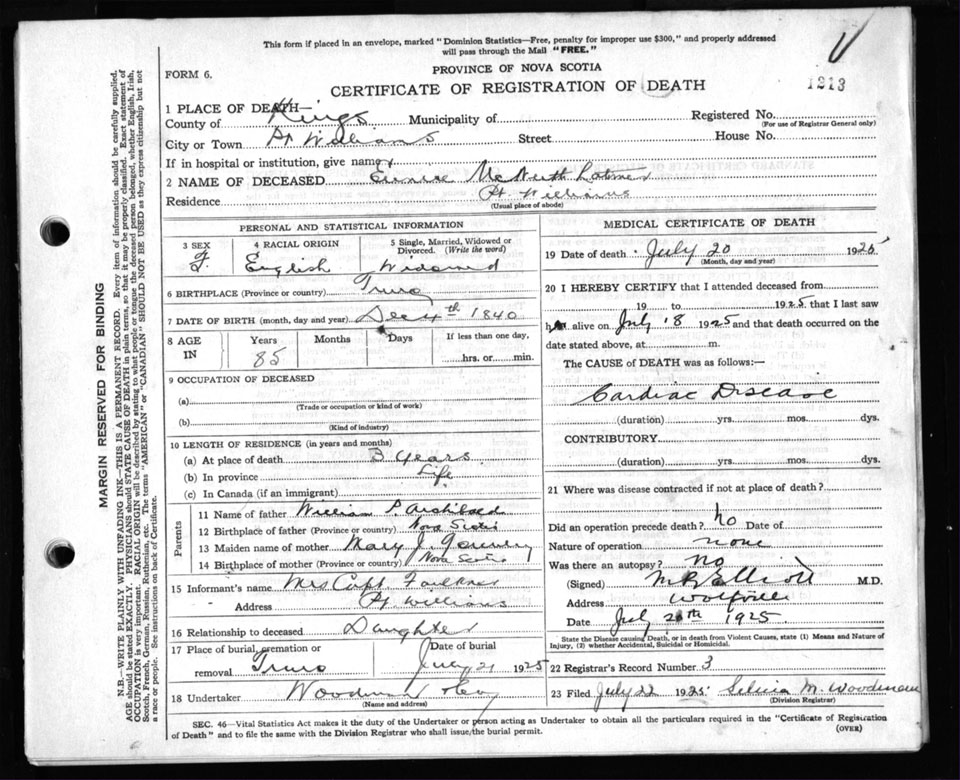 This form if placed in an envelope, marked "Dominion Statistics—Free, penalty for improper use $300," and properly addressed
will pass through the Mail "FREE."
FORM 6.
PROVINCE OF NOVA SCOTIA
CERTIFICATE OF REGISTRATION OF DEATH
1213
1 PLACE OF DEATH—
County of Kings Municipality of Registered No.
(For use of Registrar General only)
City or Town Pt Williams Street House No.
If in hospital or institution, give name
2 NAME OF DECEASED Eunice McNutt
Residence Pt. Williams
(Usual place of abode)
PERSONAL AND STATISTICAL INFORMATION
3 SEX 4 RACIAL ORIGIN 5 Single, Married, Widowed or
Divorced. (Write the word)
F. English Widowed
6 BIRTHPLACE (Province or country) Truro
7 DATE OF BIRTH (month, day and year) Dec 4th 1840
8 AGE Years Months Days If less than one day,
IN 85 hrs. or min.
9 OCCUPATION OF DECEASED
(a)
(Trade or occupation or kind of work)
(b)
(Kind of industry)
10 LENGTH OF RESIDENCE (in years and months)
(a) At place of death 3 years
(b) In province Life
(c) In Canada (if an immigrant)
Parents
11 Name of father William P Archibald
12 Birthplace of father (Province or country) Nova Scotia
13 Maiden name of mother Mary J.
14 Birthplace of mother (Province or country) Nova Scotia
15 Informant's name Mrs Capt Faulkner
Address Pt Williams
16 Relationship to deceased Daughter
17 Place of burial, cremation or Date of burial
removal Truro July 21 1925
18 Undertaker
(Name and address)
MEDICAL CERTIFICATE OF DEATH
19 Date of death July 20 1925
(Month, day and year)
20 I HEREBY CERTIFY that I attended deceased from
19 to 1925 that I last saw
h alive on July 18 1925 and that death occurred on the
date stated above, at m.
The CAUSE of DEATH was as follows:—
Cardiac Disease
(duration) yrs. mos. dys.
CONTRIBUTORY
(duration) yrs. mos. dys.
21 Where was disease contracted if not at place of death?
Did an operation precede death? No Date of
Nature of operation none
Was there an autopsy? No
(Signed) M R Elliott M.D.
Address Wolfville
Date July 20th 1925
State the Disease causing Death, or in death from Violent Causes, state (1) Means and Nature of
Injury, (2) whether Accidental, Suicidal or Homicidal.
22 Registrar's Record Number 3
23 Filed July 22 1925 M. Woodman
(Division Registrar)
SEC. 46—Vital Statistics Act makes it the duty of the Undertaker or person acting as Undertaker to obtain all the particulars required in the "Certificate of Registration
of Death" and to file the same with the Division Registrar who shall issue the burial permit.
(OVER)
MARGIN RESERVED FOR BINDING
N.B.—WRITE PLAINLY WITH UNFADING INK—THIS IS A PERMANENT RECORD. Every item of information should be carefully supplied.
AGE should be stated EXACTLY. PHYSICIANS should STATE CAUSE OF DEATH in plain terms, so that it may be properly classified. Exact statement of
OCCUPATION is very important. RACIAL ORIGIN will be described by stating to what people or tongue the deceased person belonged, whether English, Irish,
Scotch, French, German, Russian, Ruthenian, etc. The terms "AMERICAN" or "CANADIAN" SHOULD NOT BE USED as they express citizenship but not
a race or people. See instructions on back of Certificate.